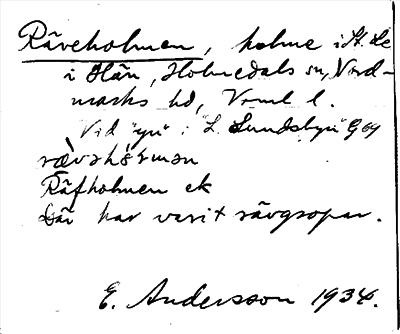 Räveholmen, holme i St. Le
i Hån, Holmedals sn, Nord-
marks hd, Vrml l.
Vid "yn" i "L. Lundsbyn" G 69
rävåhòrmən
Räfholmen ek
Där har varit rävgropar.
E. Andersson 1934.